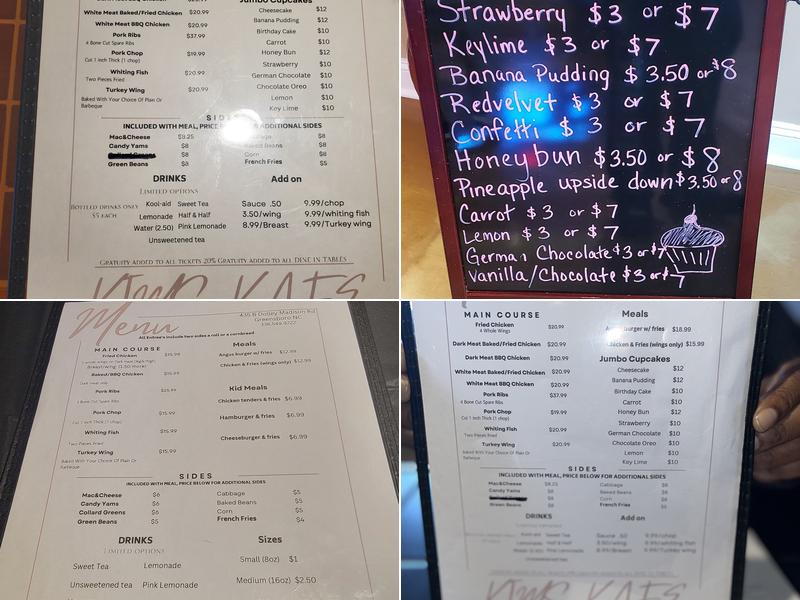 Jumbo Cupcakes
White Meat Baked/Fried Chicken $20.99
White Meat BBQ Chicken $20.99
Pork Ribs $37.99
4 Bone Cut Spare Ribs
Pork Chop $19.99
Cut 1 inch Thick (1 chop)
Whiting Fish $20.99
Two Pieces Fried
Turkey Wing $20.99
Baked With Your Choice Of Plain Or
Barbeque
Cheesecake $12
Banana Pudding $12
Birthday Cake $10
Carrot $10
Honey Bun $12
Strawberry $10
German Chocolate $10
Chocolate Oreo $10
Lemon $10
Key Lime $10
SIDES
INCLUDED WITH MEAL, PRICE BELOW FOR ADDITIONAL SIDES
Mac&Cheese $8.25
Candy Yams $8
Collard Greens $8
Green Beans $8
Cabbage $8
Baked Beans $8
Corn $8
French Fries $5
DRINKS
LIMITED OPTIONS
BOTTLED DRINKS ONLY
$5 EACH
Kool-aid Sweet Tea
Lemonade Half & Half
Water (2.50) Pink Lemonade
Unsweetened tea
Add on
Sauce .50 9.99/chop
3.50/wing 9.99/whiting fish
8.99/Breast 9.99/Turkey wing
GRATUITY ADDED TO ALL TICKETS 20% GRATUITY ADDED TO ALL DINE IN TABLES
Strawberry $3 or $7
Keylime $3 or $7
Banana Pudding $3.50 or $8
Redvelvet $3 or $7
Confetti $3 or $7
Honeybun $3.50 or $8
Pineapple upside down $3.50 or 8
Carrot $3 or $7
Lemon $3 or $7
German Chocolate $3 or $7
Vanilla/Chocolate $3 or $7
Menu
435 B Dolley Madison Rd
Greensboro NC
All Entree's include two sides a roll or a cornbread
MAIN COURSE
Fried Chicken $15.99
Breast/wing (1.50 more)
Baked/BBQ Chicken $15.99
Dark meat only
Pork Ribs $25.99
4 Bone Cut Spare Ribs
Pork Chop $15.99
Cut 1 inch Thick (1 chop)
Whiting Fish $15.99
Two Pieces Fried
Turkey Wing $15.99
Baked With Your Choice Of Plain Or
Barbeque
Meals
Angus burger w/ fries $12.99
Chicken & Fries (wings only) $12.99
Kid Meals
Chicken tenders & fries $6.99
Hamburger & fries $6.99
Cheeseburger & fries $6.99
SIDES
INCLUDED WITH MEAL, PRICE BELOW FOR ADDITIONAL SIDES
Mac&Cheese $6
Candy Yams $6
Collard Greens $6
Green Beans $5
Cabbage $5
Baked Beans $5
Corn $5
French Fries $4
DRINKS
LIMITED OPTIONS
Sweet Tea Lemonade
Unsweetened tea Pink Lemonade
Sizes
Small (8oz) $1
Medium (16oz) $2.50
MAIN COURSE
Fried Chicken $20.99
4 Whole Wings
Dark Meat Baked/Fried Chicken $20.99
Dark Meat BBQ Chicken $20.99
White Meat Baked/Fried Chicken $20.99
White Meat BBQ Chicken $20.99
Pork Ribs $37.99
4 Bone Cut Spare Ribs
Pork Chop $19.99
Cut 1 inch Thick (1 chop)
Whiting Fish $20.99
Two Pieces Fried
Turkey Wing $20.99
Baked With Your Choice Of Plain Or
Barbeque
Meals
Angus burger w/ fries $18.99
Chicken & Fries (wings only) $15.99
Jumbo Cupcakes
Cheesecake $12
Banana Pudding $12
Birthday Cake $10
Carrot $10
Honey Bun $12
Strawberry $10
German Chocolate $10
Chocolate Oreo $10
Lemon $10
Key Lime $10
SIDES
INCLUDED WITH MEAL, PRICE BELOW FOR ADDITIONAL SIDES
Mac&Cheese $8.25
Candy Yams $8
Green Beans $8
Cabbage $8
Baked Beans $8
Corn $8
French Fries
DRINKS
Kool-aid Sweet Tea
Lemonade Half & Half
Water (2.50) Pink Lemonade
Unsweetened tea
Add on
Sauce .50 9.99/chop
3.50/wing 9.99/whiting fish
8.99/Breast 9.99/Turkey wing